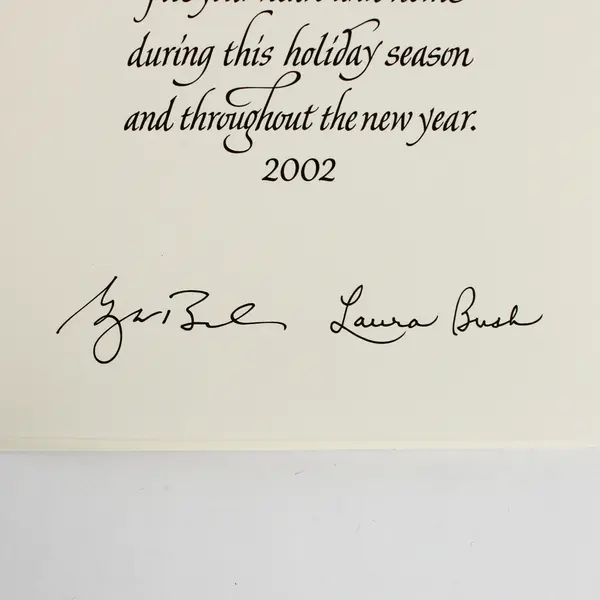 during this holiday season
and throughout the new year.
2002
George Bush Laura Bush